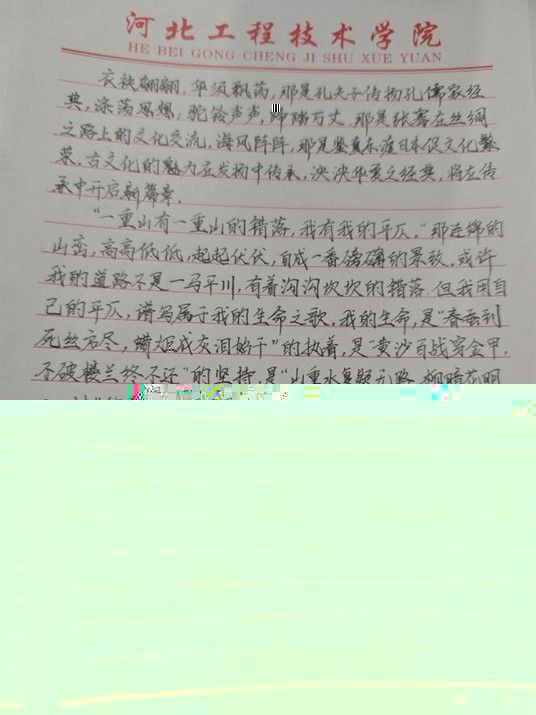 河北工程技术学院
HE BEI GONG CHENG JI SHU XUE YUAN
衣袂翩翩,华须飘荡,那是孔夫子传扬孔儒家经
典,涤荡思想,驼铃声声,蹄踏万丈,那是张骞在丝绸
之路上的文化交流,海风阵阵,那是鉴真东渡日本促文化繁
荣,古文化的魅力在发扬中传承,泱泱华夏之经典,将在传
承中开启新篇章.
"一重山有一重山的错落,我有我的平仄."那连绵的
山峦,高高低低,起起伏伏,自成一番磅礴的景致.或许
我的道路不是一马平川,有着沟沟坎坎的错落.但我用自
己的平仄,谱写属于我的生命之歌.我的生命,是"春蚕到
死丝方尽,蜡炬成灰泪始干"的执着,是"黄沙百战穿金甲,
不破楼兰终不还"的坚持,是"山重水复疑无路,柳暗花明